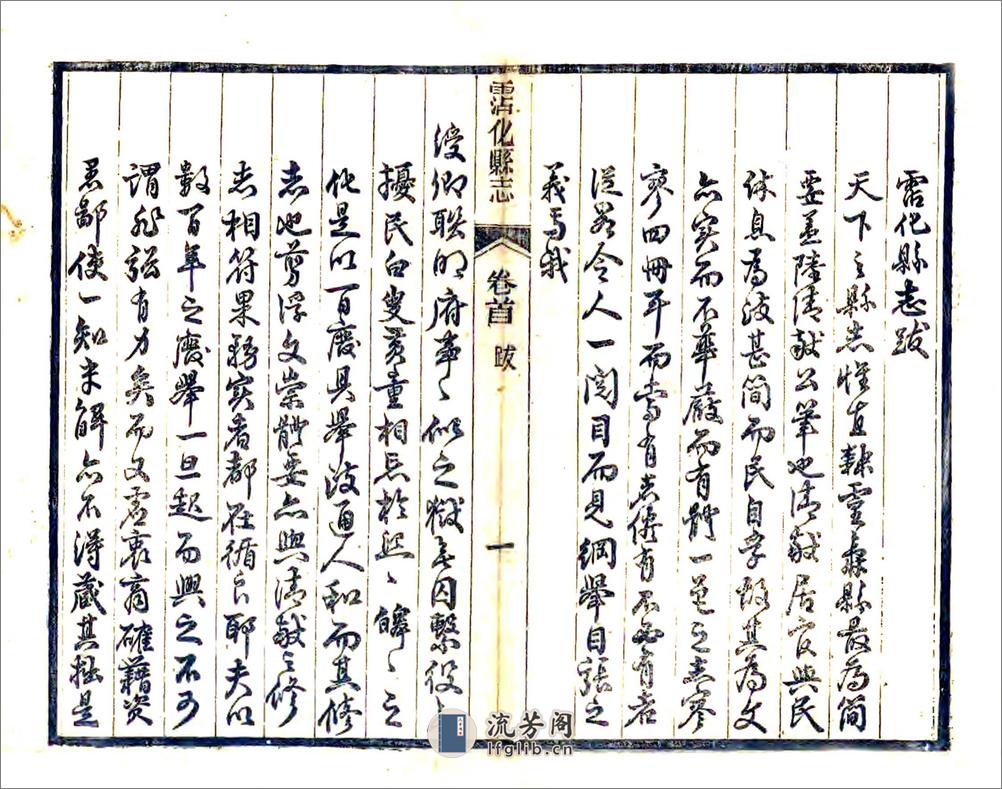 霑化縣志跋
天下之縣志惟直隸靈壽縣最為簡
要蓋陸清獻公筆也清獻居官與民
休息為政甚簡而民自孚故其為文
亦實而不華嚴而有體一邑之志寥
寥四冊耳而當有志俻有不必有者
從畧令人一閱目而見綱舉目張之
義焉我
霑化縣志
卷首
跋
一
綬卿聯明府蒞之獄無囚繫役
擾民白叟黃童相忘於熙〻皞〻之
化是以百廢具舉政通人和而其修
志也剪浮文崇體要亦與清獻之修
志相符果務實者都在循良耶夫以
數百年之廢舉一旦起而興之不可
謂非弘有力矣而又虛衷商確藉資
愚鄙使一知半解亦不得藏其拙是
流芳阁
lfglib.cn